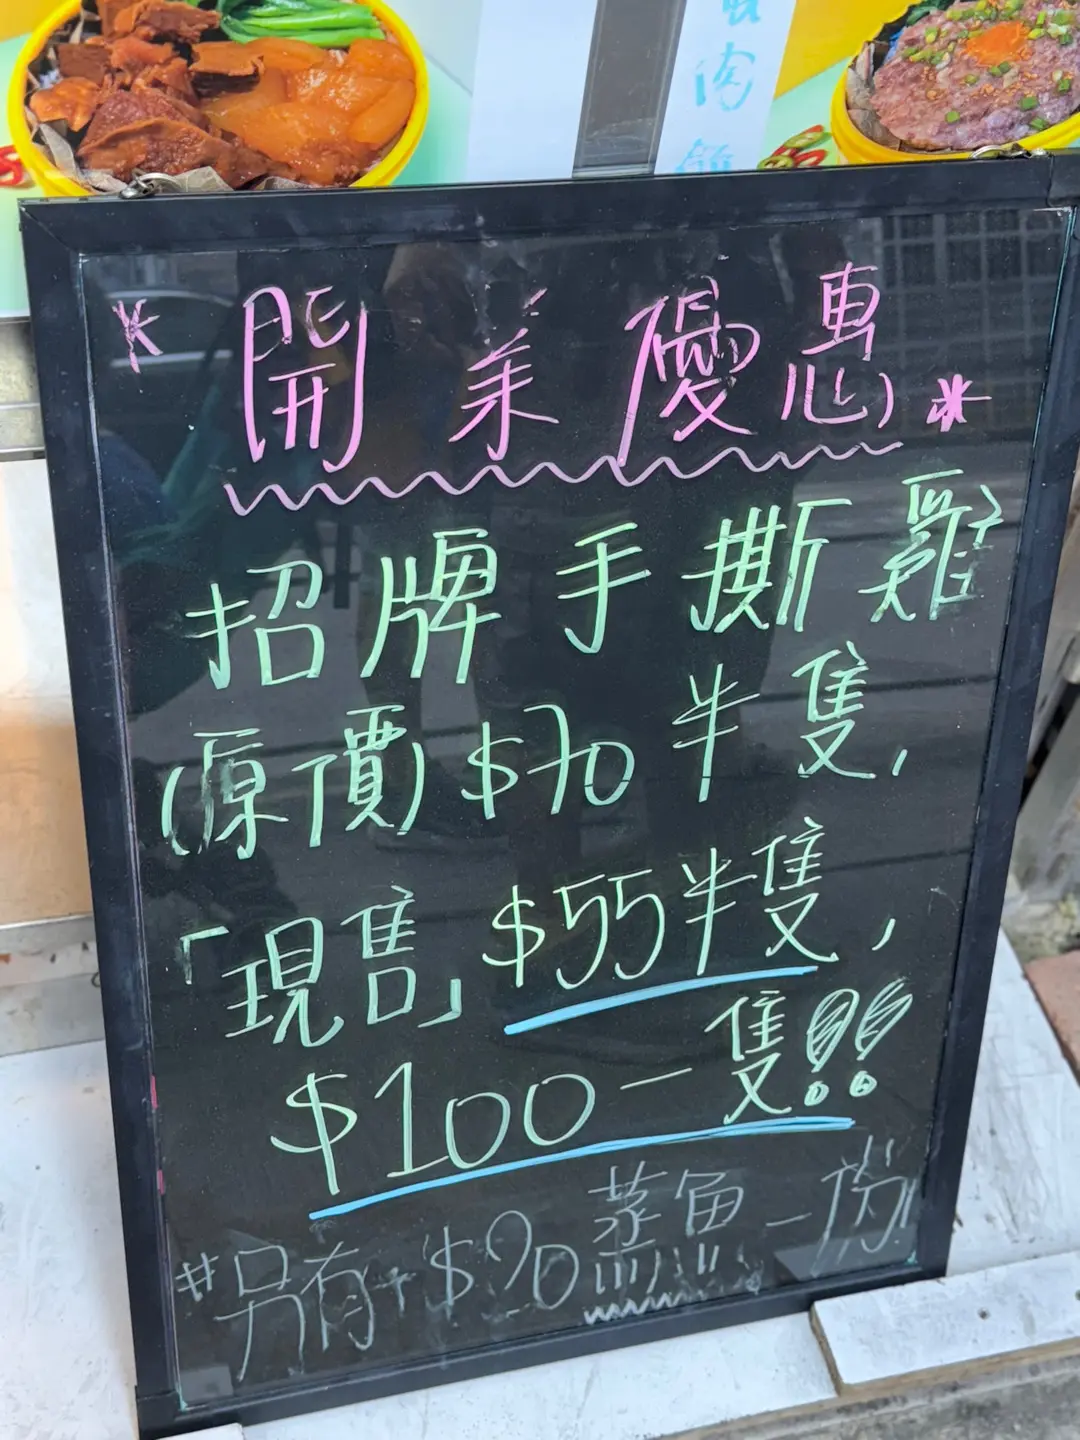 肉
* 開業優惠 *
招牌手撕雞
(原價) $70 半隻,
「現售」 $55 半隻,
$100 一隻!!
#另有+$20 蒸魚一份